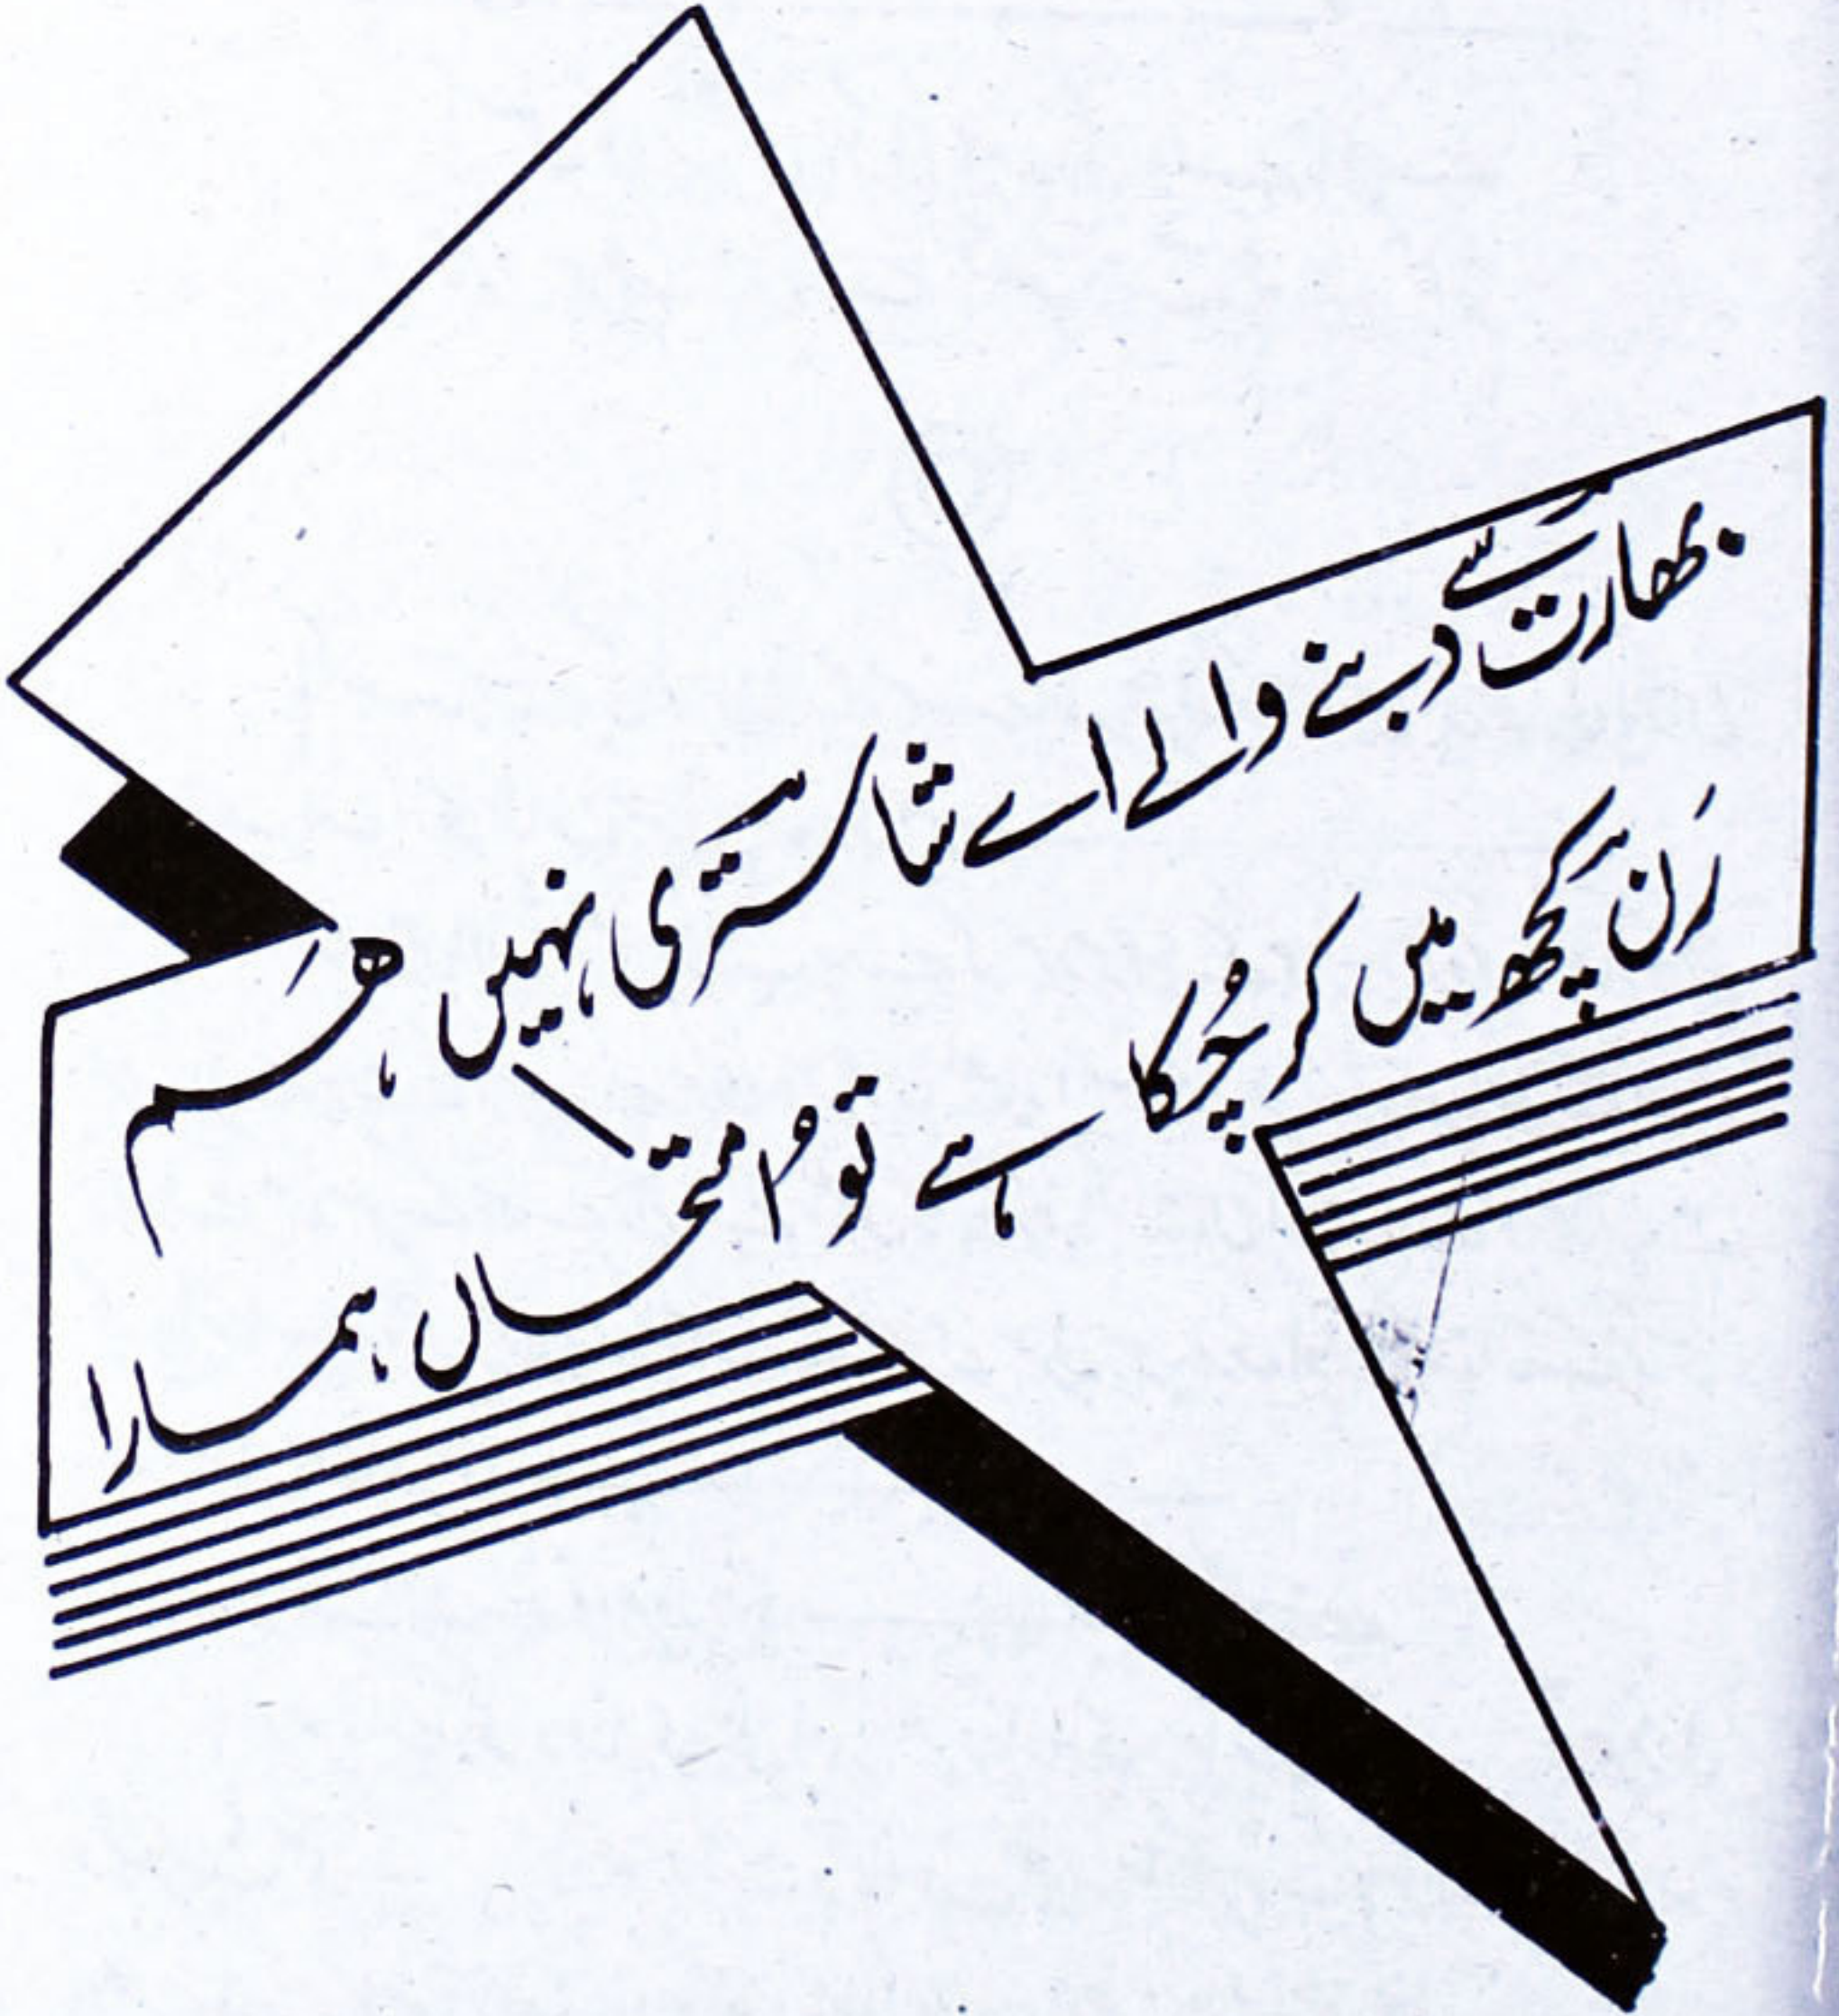 بھارت سے دبنے والے اے شاستری نہیں ہم
رَن کچھ میں کر چُکا ہے تو اِمتحاں ہمارا